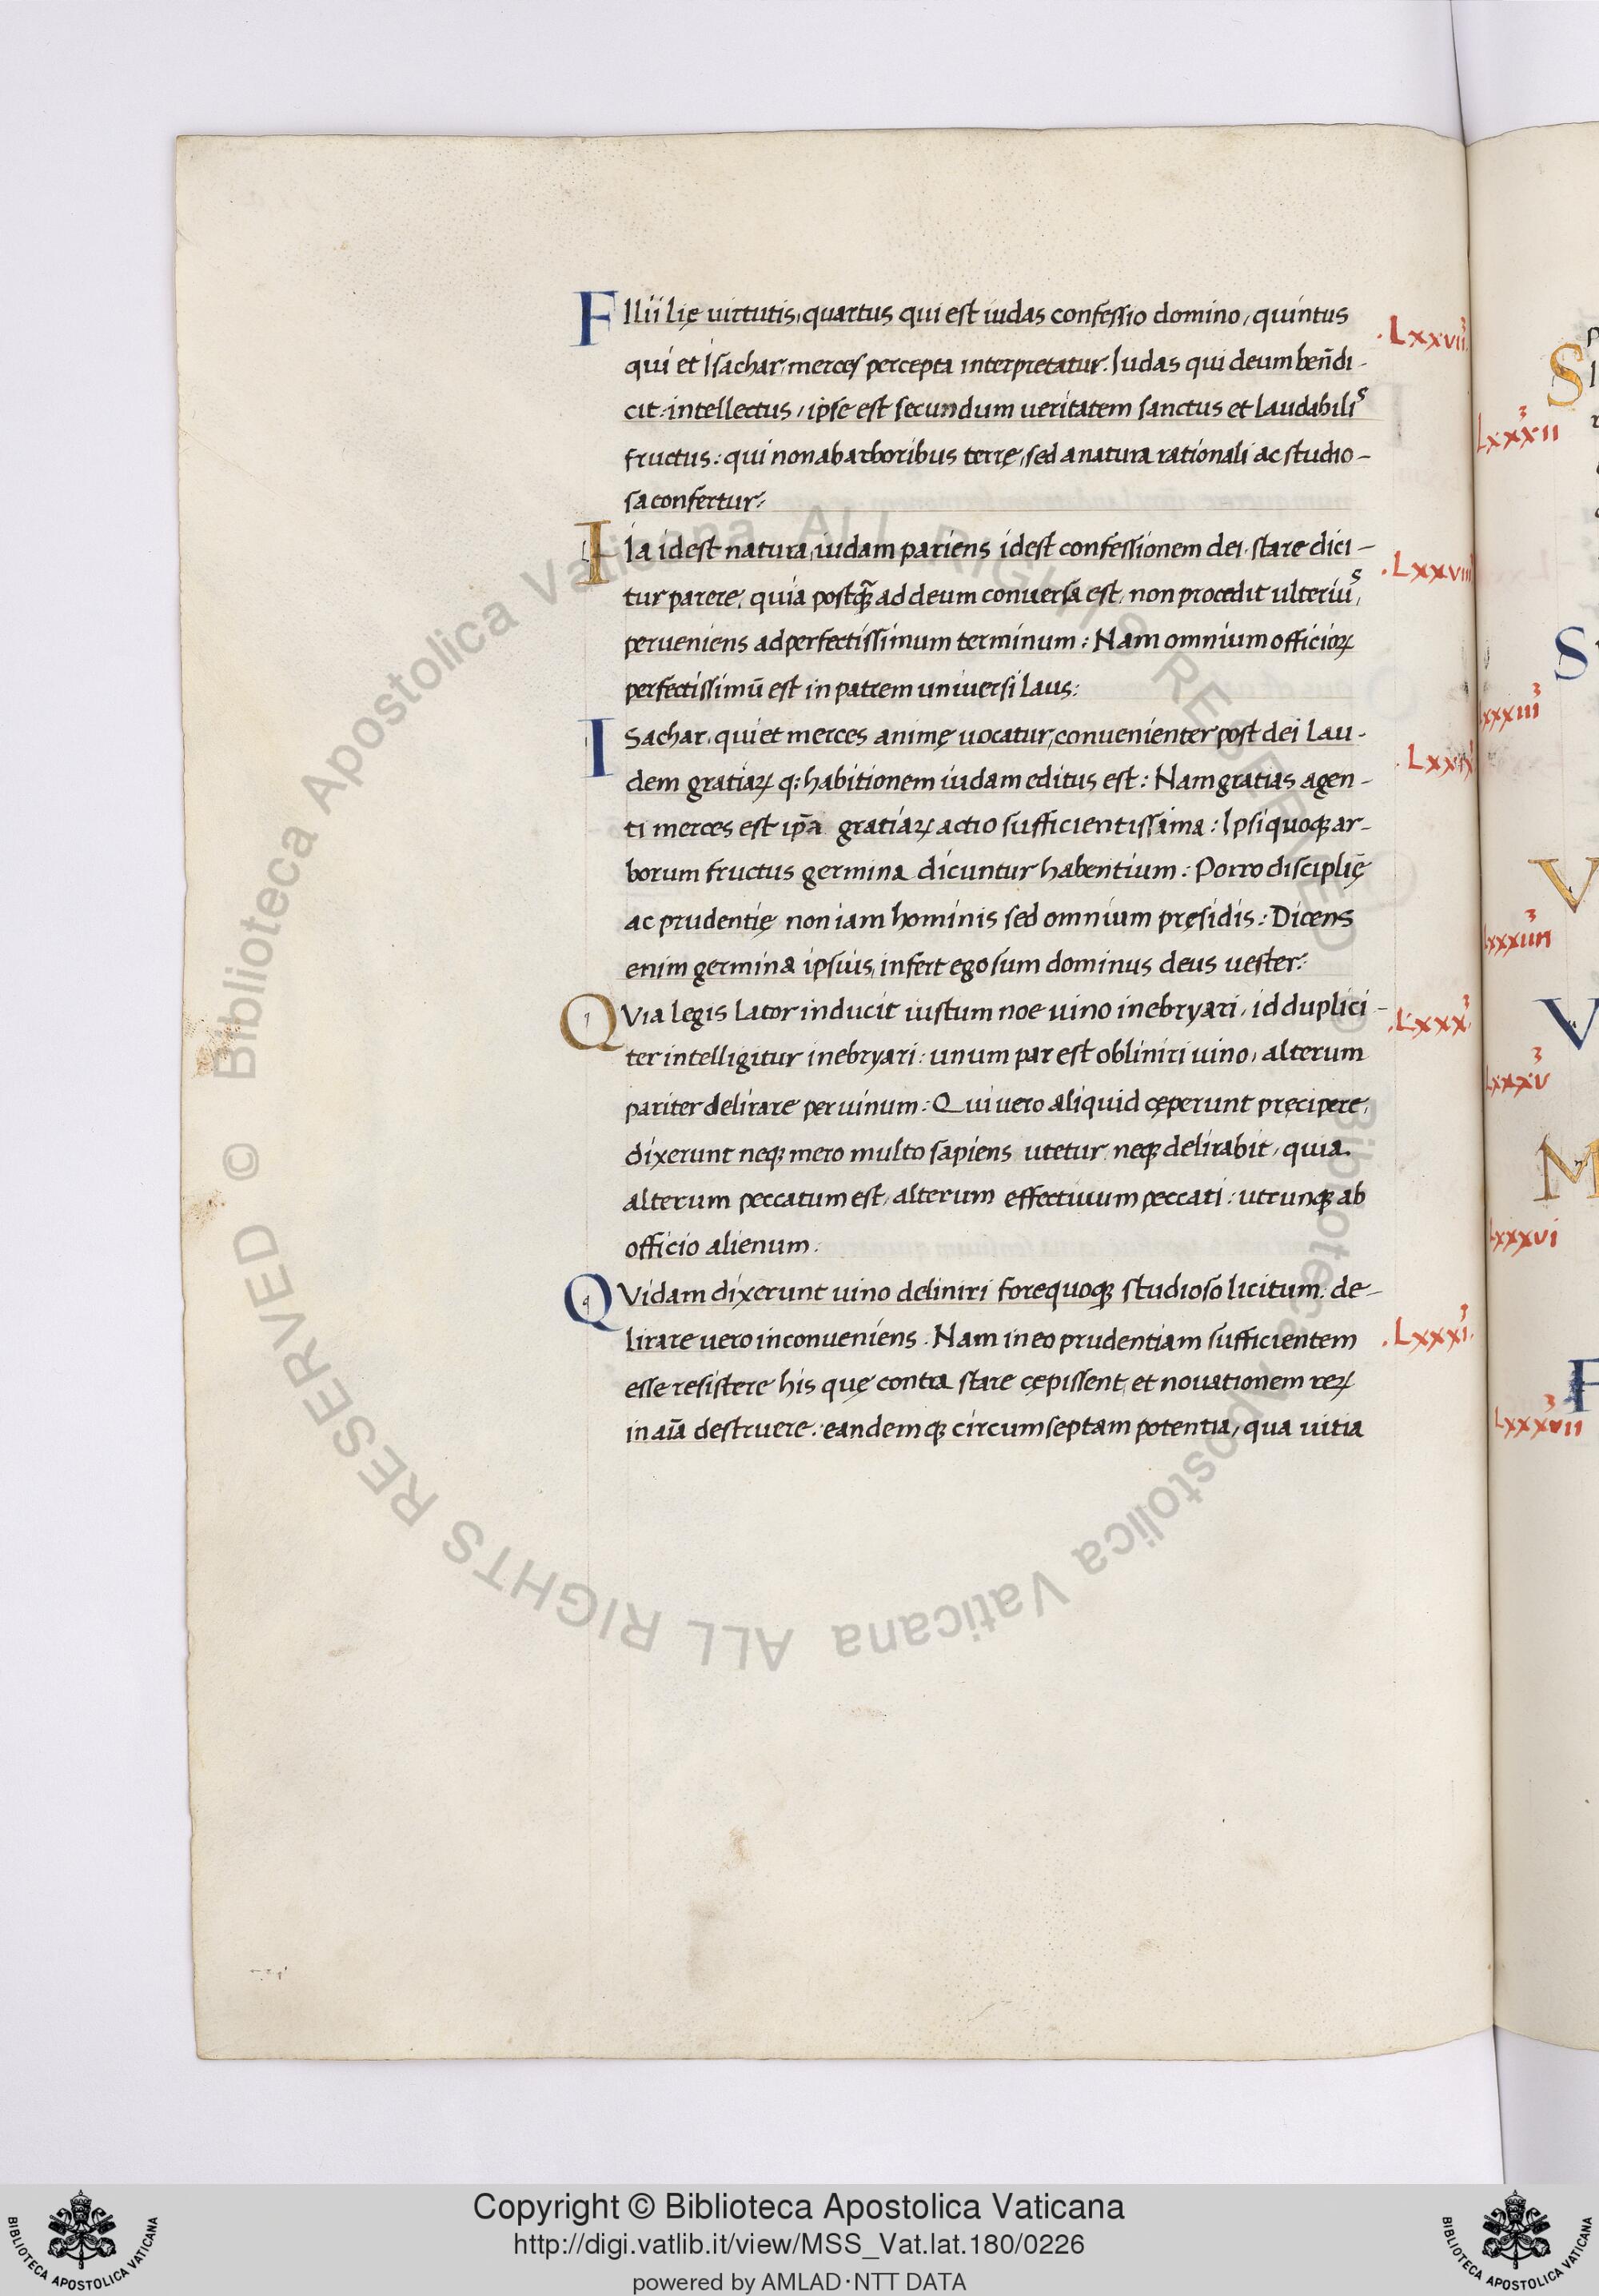 FIlii lię uirtutis, quartus qui est iudas confessio domino, quintus
.Lxxvii.
qui et Isachar, merces percepta interpretatur. Iudas qui deum ben̄di-
cit: intellectus, ipse est secundum ueritatem sanctus et laudabilis
fructus: qui non ab arboribus terrę, sed a natura rationali ac studio-
sa confertur:
Iia idest natura, iudam pariens idest confessionem dei. stare dici-
.Lxxviii
tur parere, quia postq̃ ad deum conuersa est, non procedit ulterius,
perueniens ad perfectissimum terminum: Nam omnium officioꝝ
perfectissimū est in patrem uniuersi laus:
ISachar, qui et merces animę uocatur, conuenienter post dei lau-
.Lxxix
dem gratiaꝝ q: habitionem iudam editus est: Nam gratias agen-
ti merces est ip̄a gratiaꝝ actio sufficientissima: Ipsi quoqꝫ ar-
borum fructus germina dicuntur habentium: Porro disciplię
ac prudentię non iam hominis sed omnium pręsidis: Dicens
enim germina ipsius, infert ego sum dominus deus uester:
QVia legis lator inducit iustum noe uino inebryari, id duplici-
.Lxxx.
ter intelligitur inebryari: unum par est obliniri uino, alterum
pariter delirare per uinum: Qui uero aliquid cęperunt pręcipere,
dixerunt neqꝫ mero multo sapiens utetur neqꝫ delirabit, quia
alterum peccatum est, alterum effectiuum peccati: utrunqꝫ ab
officio alienum.
QVidam dixerunt uino deliniri fore quoqꝫ studioso licitum. de-
.Lxxxi.
lirare uero inconueniens. Nam in eo prudentiam sufficientem
esse resistere his quę contra stare cępissent, et nouationem reꝝ
in aīa destruere: eandemqꝫ circumseptam potentia, qua uitia
S
Lxxxii
S
Lxxxiii
V
Lxxxiiii
V
Lxxxv
M
Lxxxvi
F
Lxxxvii
© Biblioteca Apostolica Vaticana ALL RIGHTS RESERVED
© Biblioteca Apostolica Vaticana ALL RIGHTS RESERVED
BIBLIOTECA APOSTOLICA VATICANA
Copyright © Biblioteca Apostolica Vaticana
http://digi.vatlib.it/view/MSS_Vat.lat.180/0226
powered by AMLAD·NTT DATA
BIBLIOTECA APOSTOLICA VATICANA